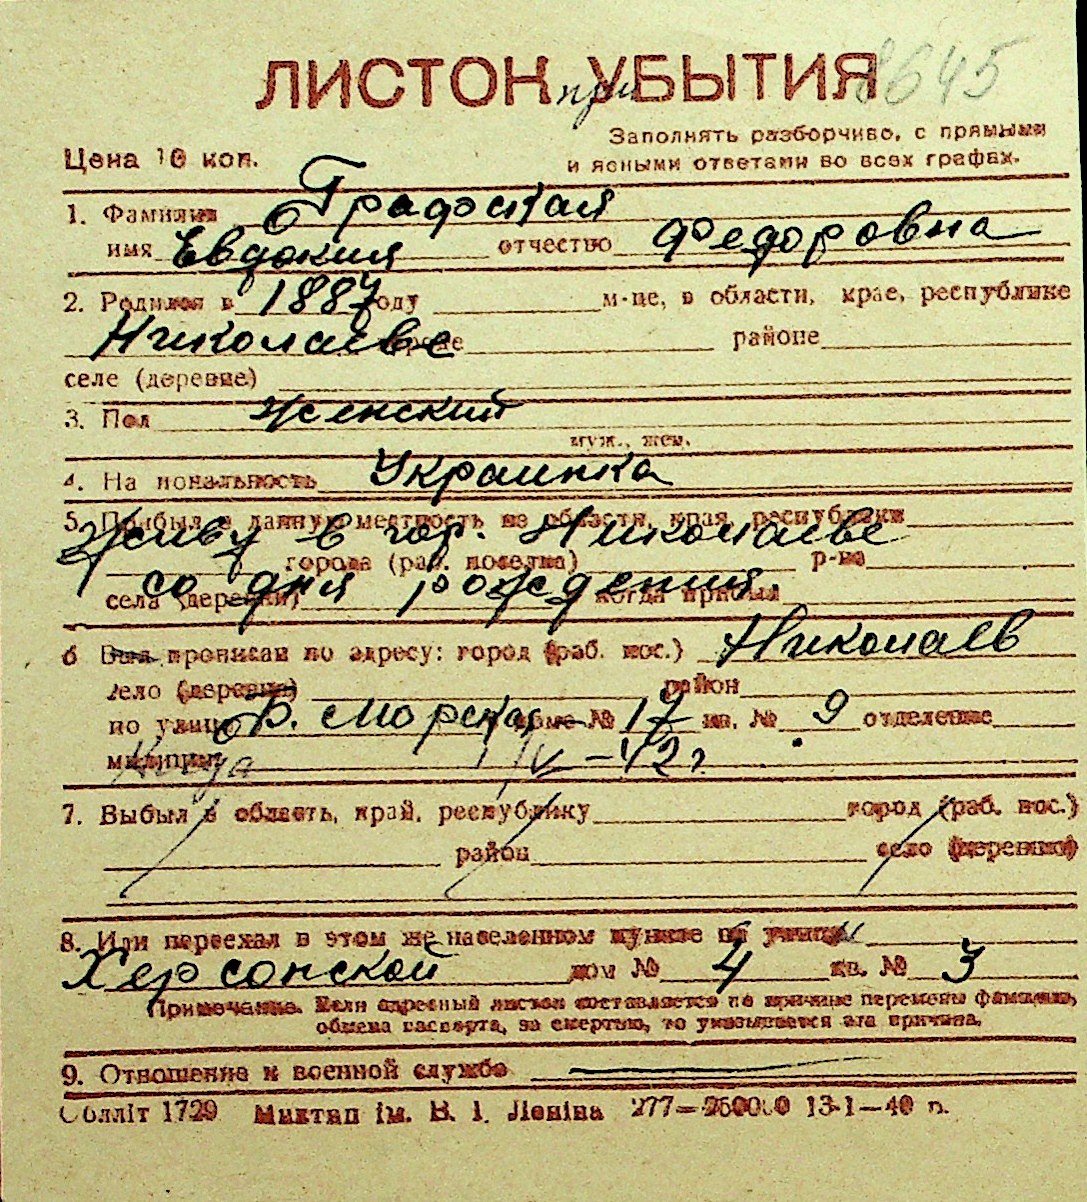 ЛИСТОН при УБЫТИЯ 8645
Заполнять разборчиво, с прямыми
Цена 10 коп. и ясными ответами во всех графах.
1. Фамилия Графская
имя Евдокия отчество Федоровна
2. Родился в 1887 году м-це, в области, крае, республике
Николаеве городе районе
селе (деревне)
3. Пол женский
муж., жен.
4. На иональность Украинка
5. Прибыл в данную местность из области, края, республики
Живу в гор. Николаеве
города (раб. поселка) р-на
со дня рождения.
села (деревни) когда прибыл
6 Был прописан по адресу: город (раб. пос.) Николаев
село (деревня) район
по улице Б. Морская доме № 17 кв. № 9 отделение
милиции Когда 1/IV – 42 г.
7. Выбыл в область, край, республику город (раб. пос.)
район село (деревню)
8. Или переехал в этом же населенном пункте по улицы
Херсонской дом № 4 кв. № 3
Примечание. Если адресный листок составляется по причине перемены фамилии,
обмена паспорта, за смертью, то указывается эта причина.
9. Отношение к военной службе
Облліт 1729 Миктип ім. В. І. Леніна 277—250000 13-1—40 р.